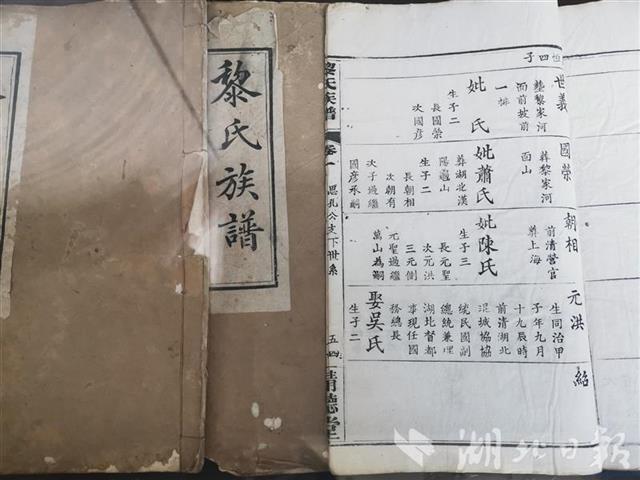 黎氏族譜
恒四子
黎氏族譜
卷一
恩孔公支下世系
五四
世義
塟黎家河
面前坡前
一排
妣 氏
生子二
長國榮
次國彦
國榮
葬黎家河
面山
妣蕭氏
葬湖北漢
陽龜山
生子二
長朝相
次朝有
次子過繼
國彦承嗣
朝相
前清營官
葬上海
妣陳氏
生子三
長元聖
次元洪
三元倒
元聖過繼
萬山為嗣
元洪
生同治甲
子年九月
十九辰時
前清湖北
混城協協
統民國副
總統兼理
湖北督都
事現任國
務總長
娶吳氏
生子二
紹
湖北日報